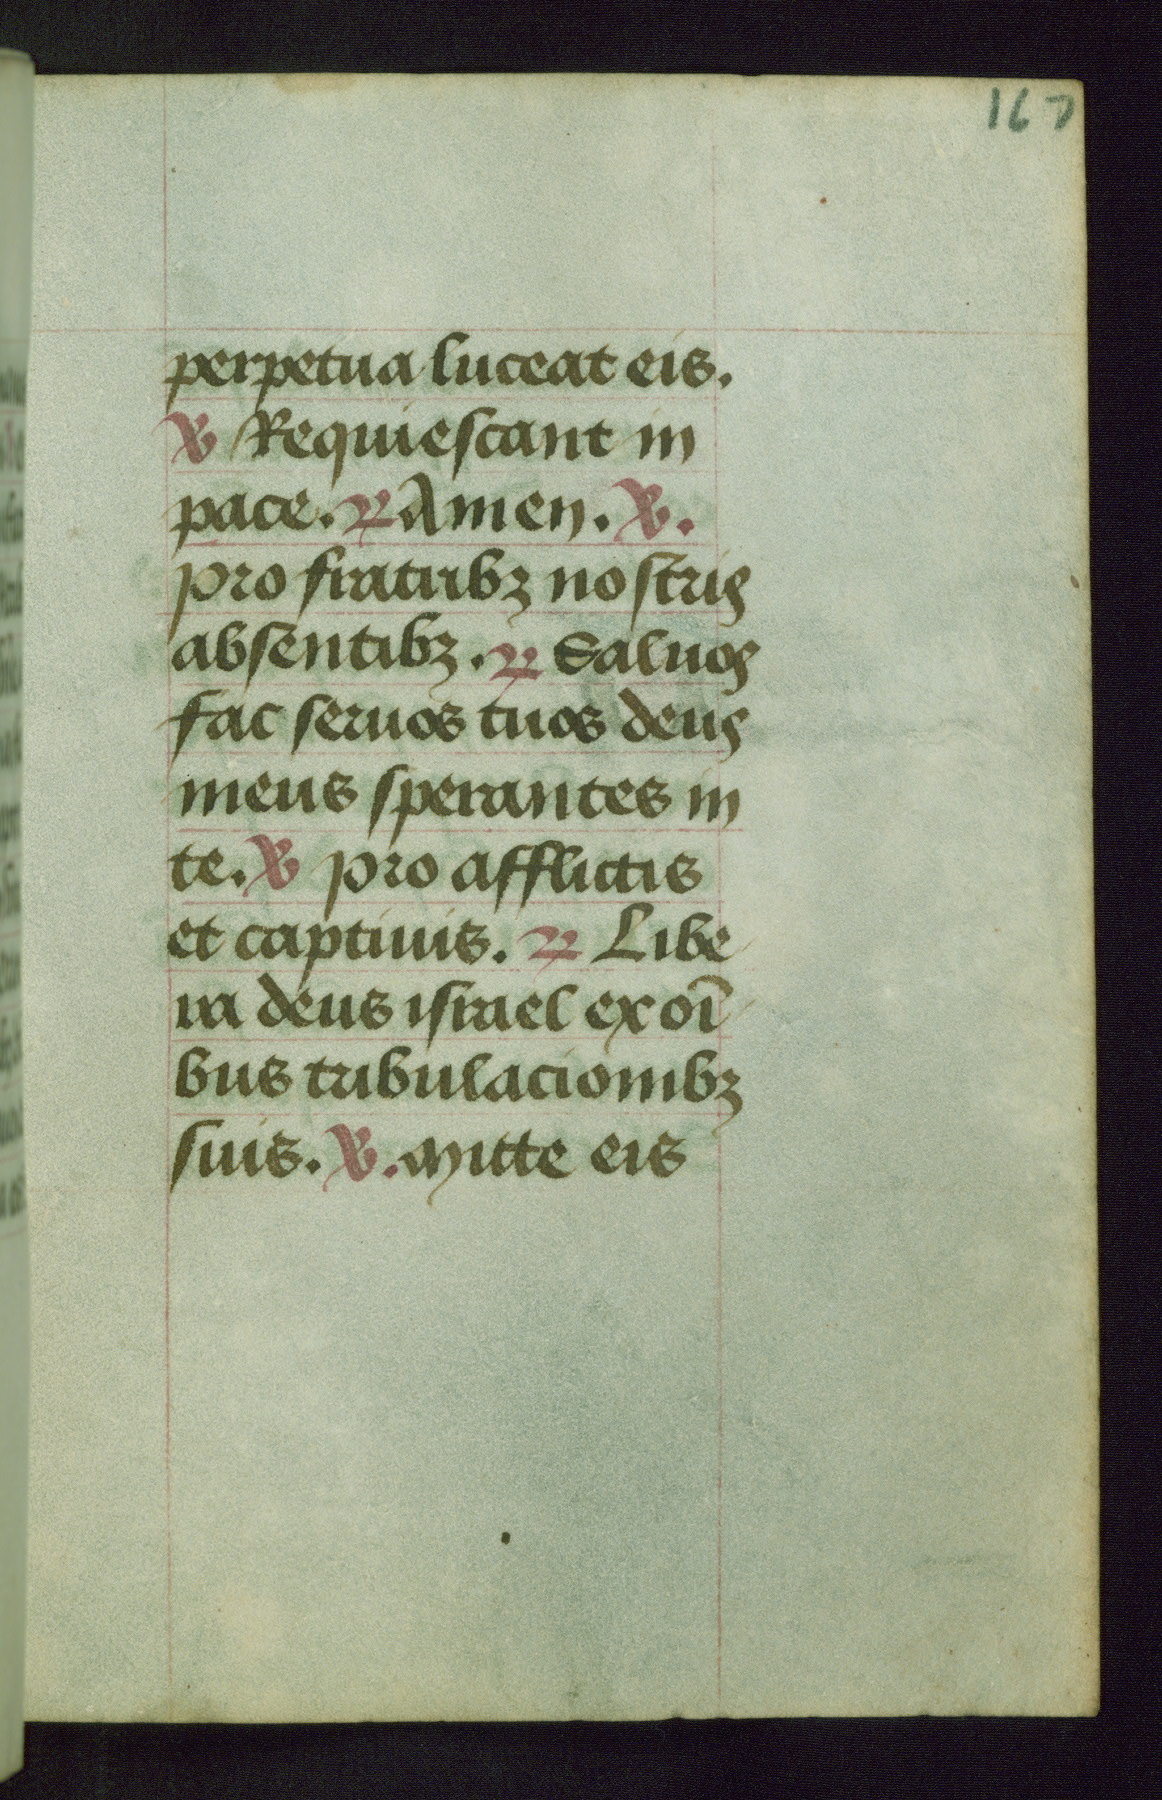 167
perpetua luceat eis.
℣ Requiescant in
pace. ℟ Amen. ℣.
pro fratribꝫ nostris
absentibꝫ. ℟ Saluos
fac seruos tuos deus
meus sperantes in
te. ℣ pro afflictis
et captiuis. ℟ Libe
ra deus israel ex oı̅
bus tribulacionibꝫ
suis. ℣. Mitte eis